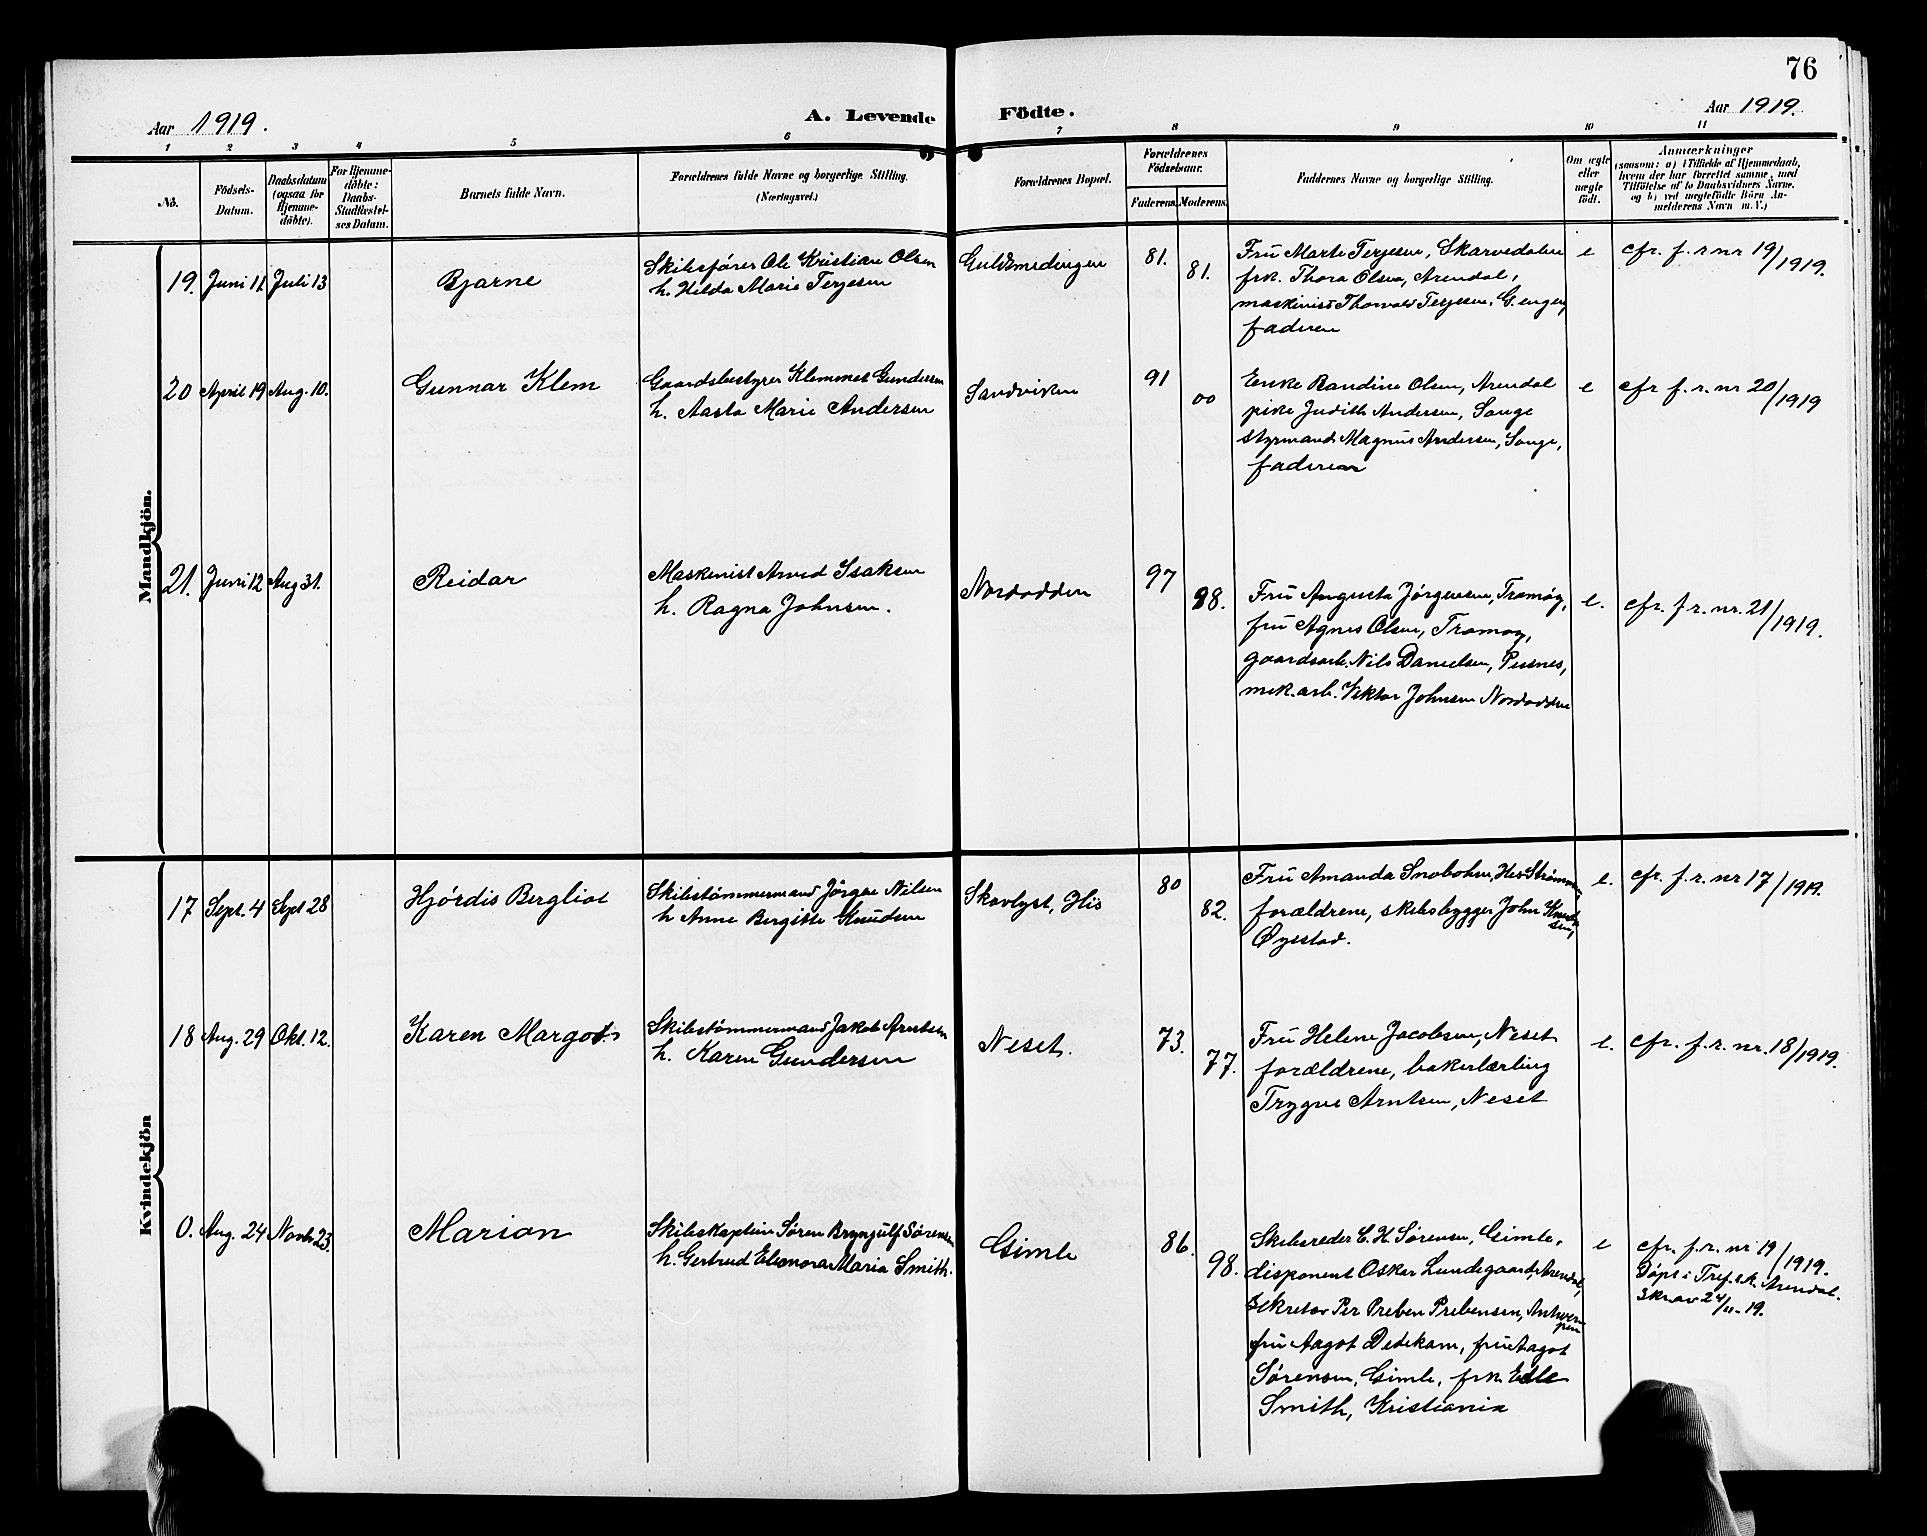 76
Aar 1919.
A. Levende Födte.
Aar 1919.
1 2 3 4 5 6 7 8 9 10 11
No.
Födsels-
Datum.
Daabsdatum
(ogsaa for
Hjemme-
döbte).
For Hjemme-
döbte:
Daabs-
Stadfæstel-
ses Datum.
Barnets fulde Navn.
Forældrenes fulde Navne og borgerlige Stilling.
(Næringsvei.)
Forældrenes Bopæl.
Forældrenes
Födselsaar.
Faderens. Moderens.
Faddernes Navne og borgerlige Stilling.
Om ægte
eller
uægte
födt.
Anmærkninger
(saasom: a) i Tilfælde af Hjemmedaab,
hvem der har forrettet samme, med
Tilföielse af to Daabsvidners Navne,
og b) ved uægtefödte Börn An-
melderens Navn m. V.)
Mandkjön.
19. Juni 11 Juli 13
Bjarne
Skibsfører Ole Kristian Olsen
h. Hilda Marie Terjesen
Guldsmedengen
81.
81.
Fru Marte Terjesen, Skarvedalen
frk. Thora Olsen, Arendal,
maskinist Thorvald Terjesen, G.engen,
faderen
e
cfr. f. r nr 19/1919.
20 April 19 Aug. 10.
Gunnar Klem
Gaardsbestyrer Klemmet Gundersen
h. Aasta Marie Andersen
Sandviken
91
00
Enke Randine Olsen, Arendal
pike Judith Andersen, Songe
styrmand Magnus Andersen, Songe,
faderen
e
cfr f. r. nr 20/1919
21. Juni 12 Aug 31.
Reidar
Maskinist Arved Isaksen
h. Ragna Johnsen.
Nordodden
97
98.
Fru Augusta Jørgensen, Tromøy,
fru Agnes Olsen, Tromøy,
gaardsarb. Nils Danielsen, Pusnes,
mek. arb. Viktor Johnsen Nordodden
e.
cfr. f. r. nr. 21/1919.
Kvindekjön
17 Sept. 4 Sept 28
Hjördis Bergliot
Skibstømmermand Jörgen Nilsen
h Anne Bergitte Knudsen
Skovlyst, His
80
82.
Fru Amanda Snobohm, His Strømmen,
forældrene, skibsbygger John Knudsen,
Øyestad.
e.
cfr. f. r. nr 17/1919.
18 Aug. 29 Okt. 12.
Karen Margot
Skibstømmermand Jakob Arntsen
h. Karen Gundersen
Neset.
73.
77.
Fru Helene Jacobsen, Neset
forældrene, bakerlærling
Trygve Arntsen, Neset
e.
cfr. f. r. nr. 18/1919.
0. Aug. 24 Novbr 23.
Marion
Skibskaptein Søren Brynjulf Sørensen
h. Gertrud Eleonora Maria Smith.
Gimle
86.
98.
Skibsreder C. H. Sørensen, Gimle,
disponent Oskar Lundegaard, Arendal,
sekretær Per Preben Prebensen, Antwerpen
fru Aagot Dedekam, fru Aagot
Sørensen, Gimle, frk. Edle
Smith, Kristiania
e
cfr. f. r. nr 19/1919.
Döpt i Tref. k. Arendal.
Skr. av 24/11-19.